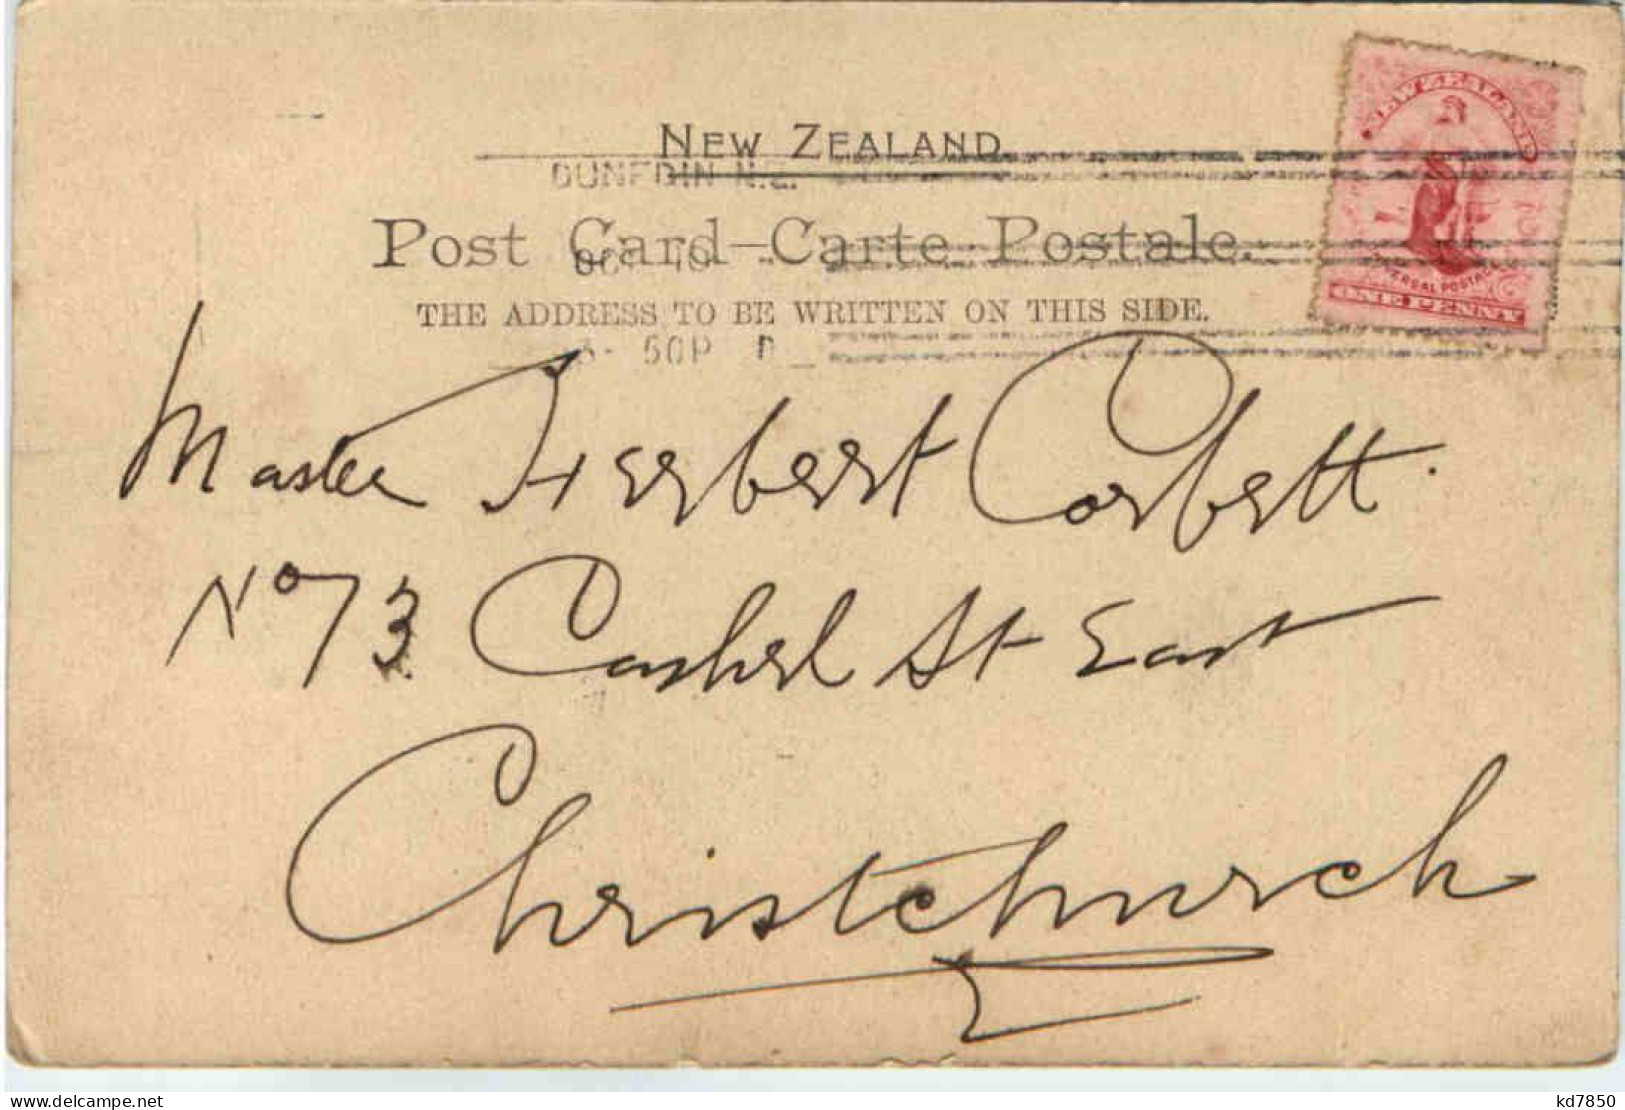 NEW ZEALAND
DUNEDIN N.Z.
Post Card—Carte Postale.
OCT 16
THE ADDRESS TO BE WRITTEN ON THIS SIDE.
50P
NEW ZEALAND
UNIVERSAL POSTAGE
ONE PENNY
Master Herbert Corbett.
No 73 Cashel St East
Christchurch
kd7850